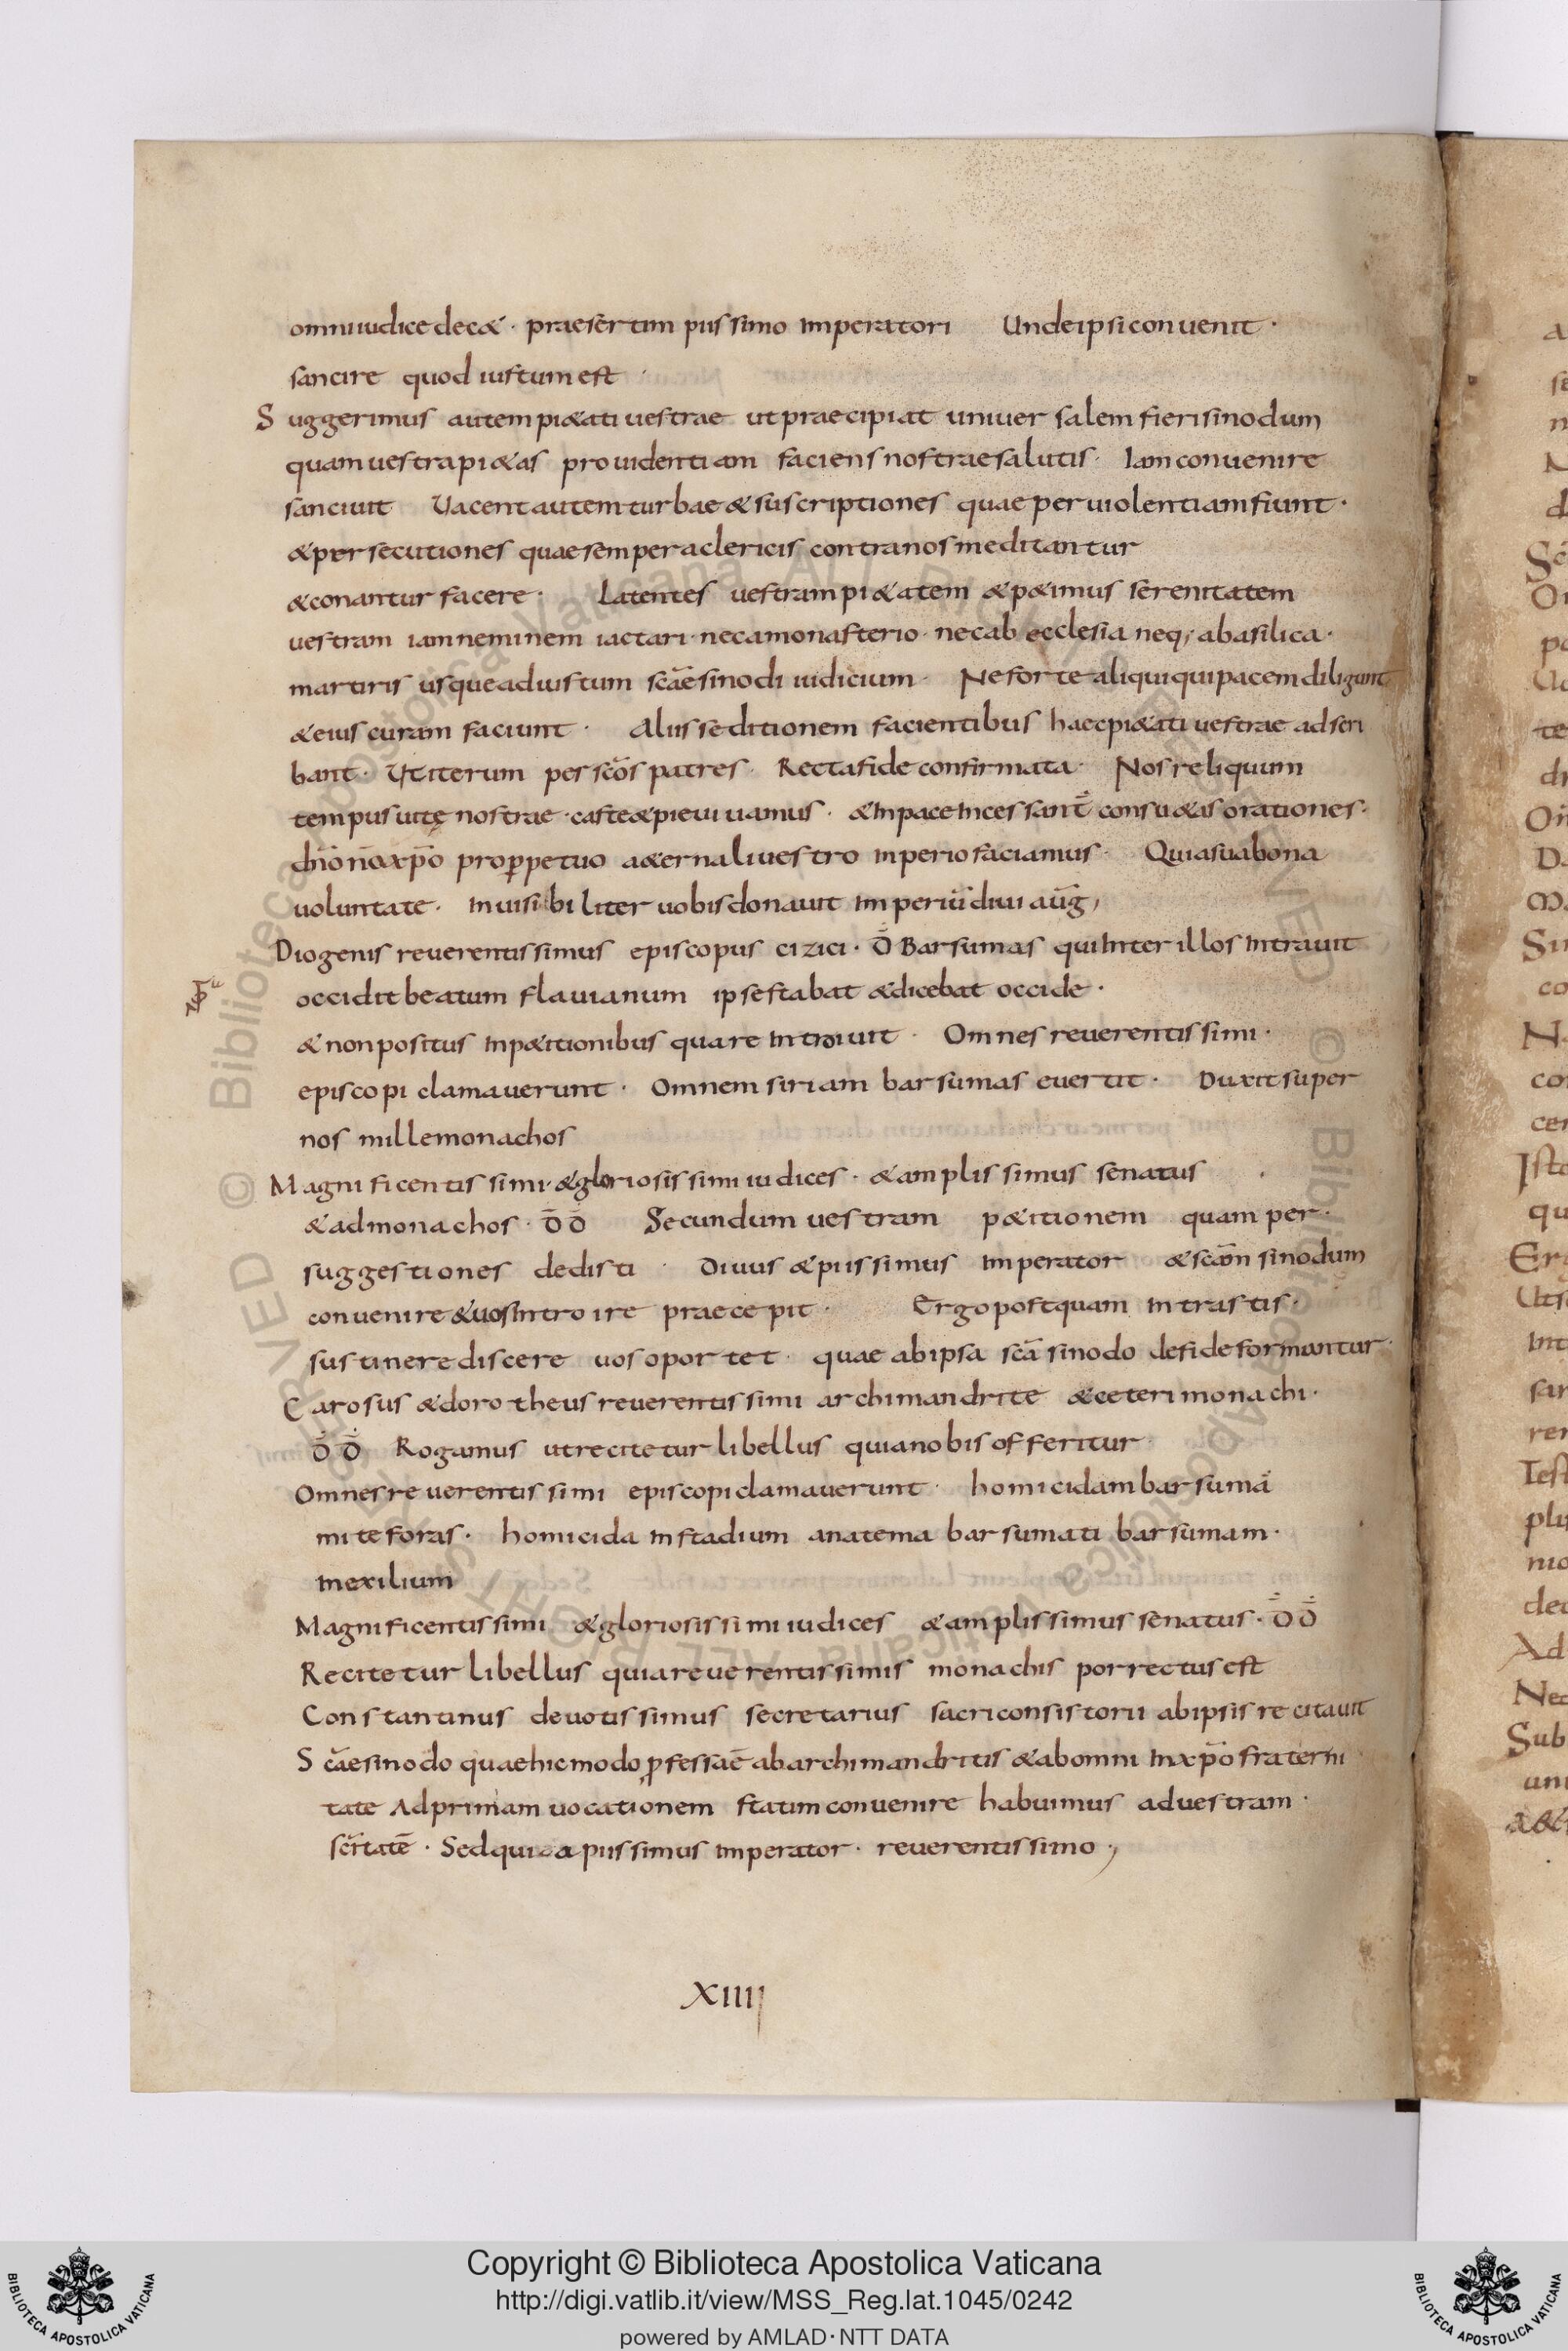 omniiudicedecet · praesertim piissimo Imperatori Undeipsiconuenit ·
sancire quod iustumest ·
Suggerimus autem pietati uestrae ut praecipiat uniuersalem fierisinodum
quam uestrapietas prouidentiam faciens nostraesalutis · Iam conuenire
sanciuit Uacent autem turbae & suscriptiones quae per uiolentiam fiunt ·
& persecutiones quae semper aclericis contranos meditantur
& conantur facere · Latentes uestram pi&atem & p&imus serenitatem
uestram iam neminem iactari · nec amonasterio · necab ecclesia neq; abasilica ·
martiris usque adiustum scāe sinodi iudicium · Ne forte aliqui qui pacem diligunt
& eius curam faciunt · Aliis seditionem facientibus haec pi&ati uestrae adscri
bant · Ut iterum per scōs patres · Recta fide confirmata · Nos reliquum
tempus uitę nostrae · caste & pie uiuamus · & Inpace Incessant̄ consu&is orationes ·
dn̄o nōxp̄o prop̄petuo a&ernali uestro Inperio faciamus · Quia sua bona
uoluntate · Inuisibiliter uobis donauit Imperiū diui aūg,
Diogenis reuerentissimus episcopus cizici · D̄ Barsumas qui Inter illos Intrauit
occidit beatum flauianum ipse stabat & dicebat occide ·
& non positus Inp&itionibus quare Introiuit · Omnes reuerentissimi ·
episcopi clamauerunt · Omnem siriam barsumas euertit · Duxit super
nos mille monachos
Magnificentissimi · & gloriosissimi iudices · & amplissimus senatus ·
& ad monachos · D̄ D̄ Secundum uestram p&itionem quam per ·
suggestiones dedisti · Diuus & piissimus Imperator & scām sinodum
conuenire & uos Introire praecepit · Ergo postquam Intrastis ·
sustinere discere uos oportet · quae ab ipsa scā sinodo de fide formantur ·
Carosus & dorotheus reuerentissimi archimandrite & ceteri monachi ·
D̄ D̄ Rogamus ut recitetur libellus quia nobis offeritur
Omnes reuerentissimi episcopi clamauerunt · homicidam barsumā
mite foras · homicida Instadium anatema barsumati barsumam ·
Inexilium
Magnificentissimi & gloriosissimi iudices & amplissimus senatus · D̄ D̄
Recitetur libellus quia reuerentissimis monachis porrectus est
Constantinus deuotissimus secretarius sacri consistorii ab ipsis recitauit
Scāe sinodo quae hic modo p̄fessaē ab archimandritis & ab omni Inxp̄o fraterni
tate Ad primam uocationem statim conuenire habuimus ad uestram ·
scītatē · Sed quia piissimus Imperator · reuerentissimo ;
XIIII
Copyright © Biblioteca Apostolica Vaticana
http://digi.vatlib.it/view/MSS_Reg.lat.1045/0242
powered by AMLAD · NTT DATA